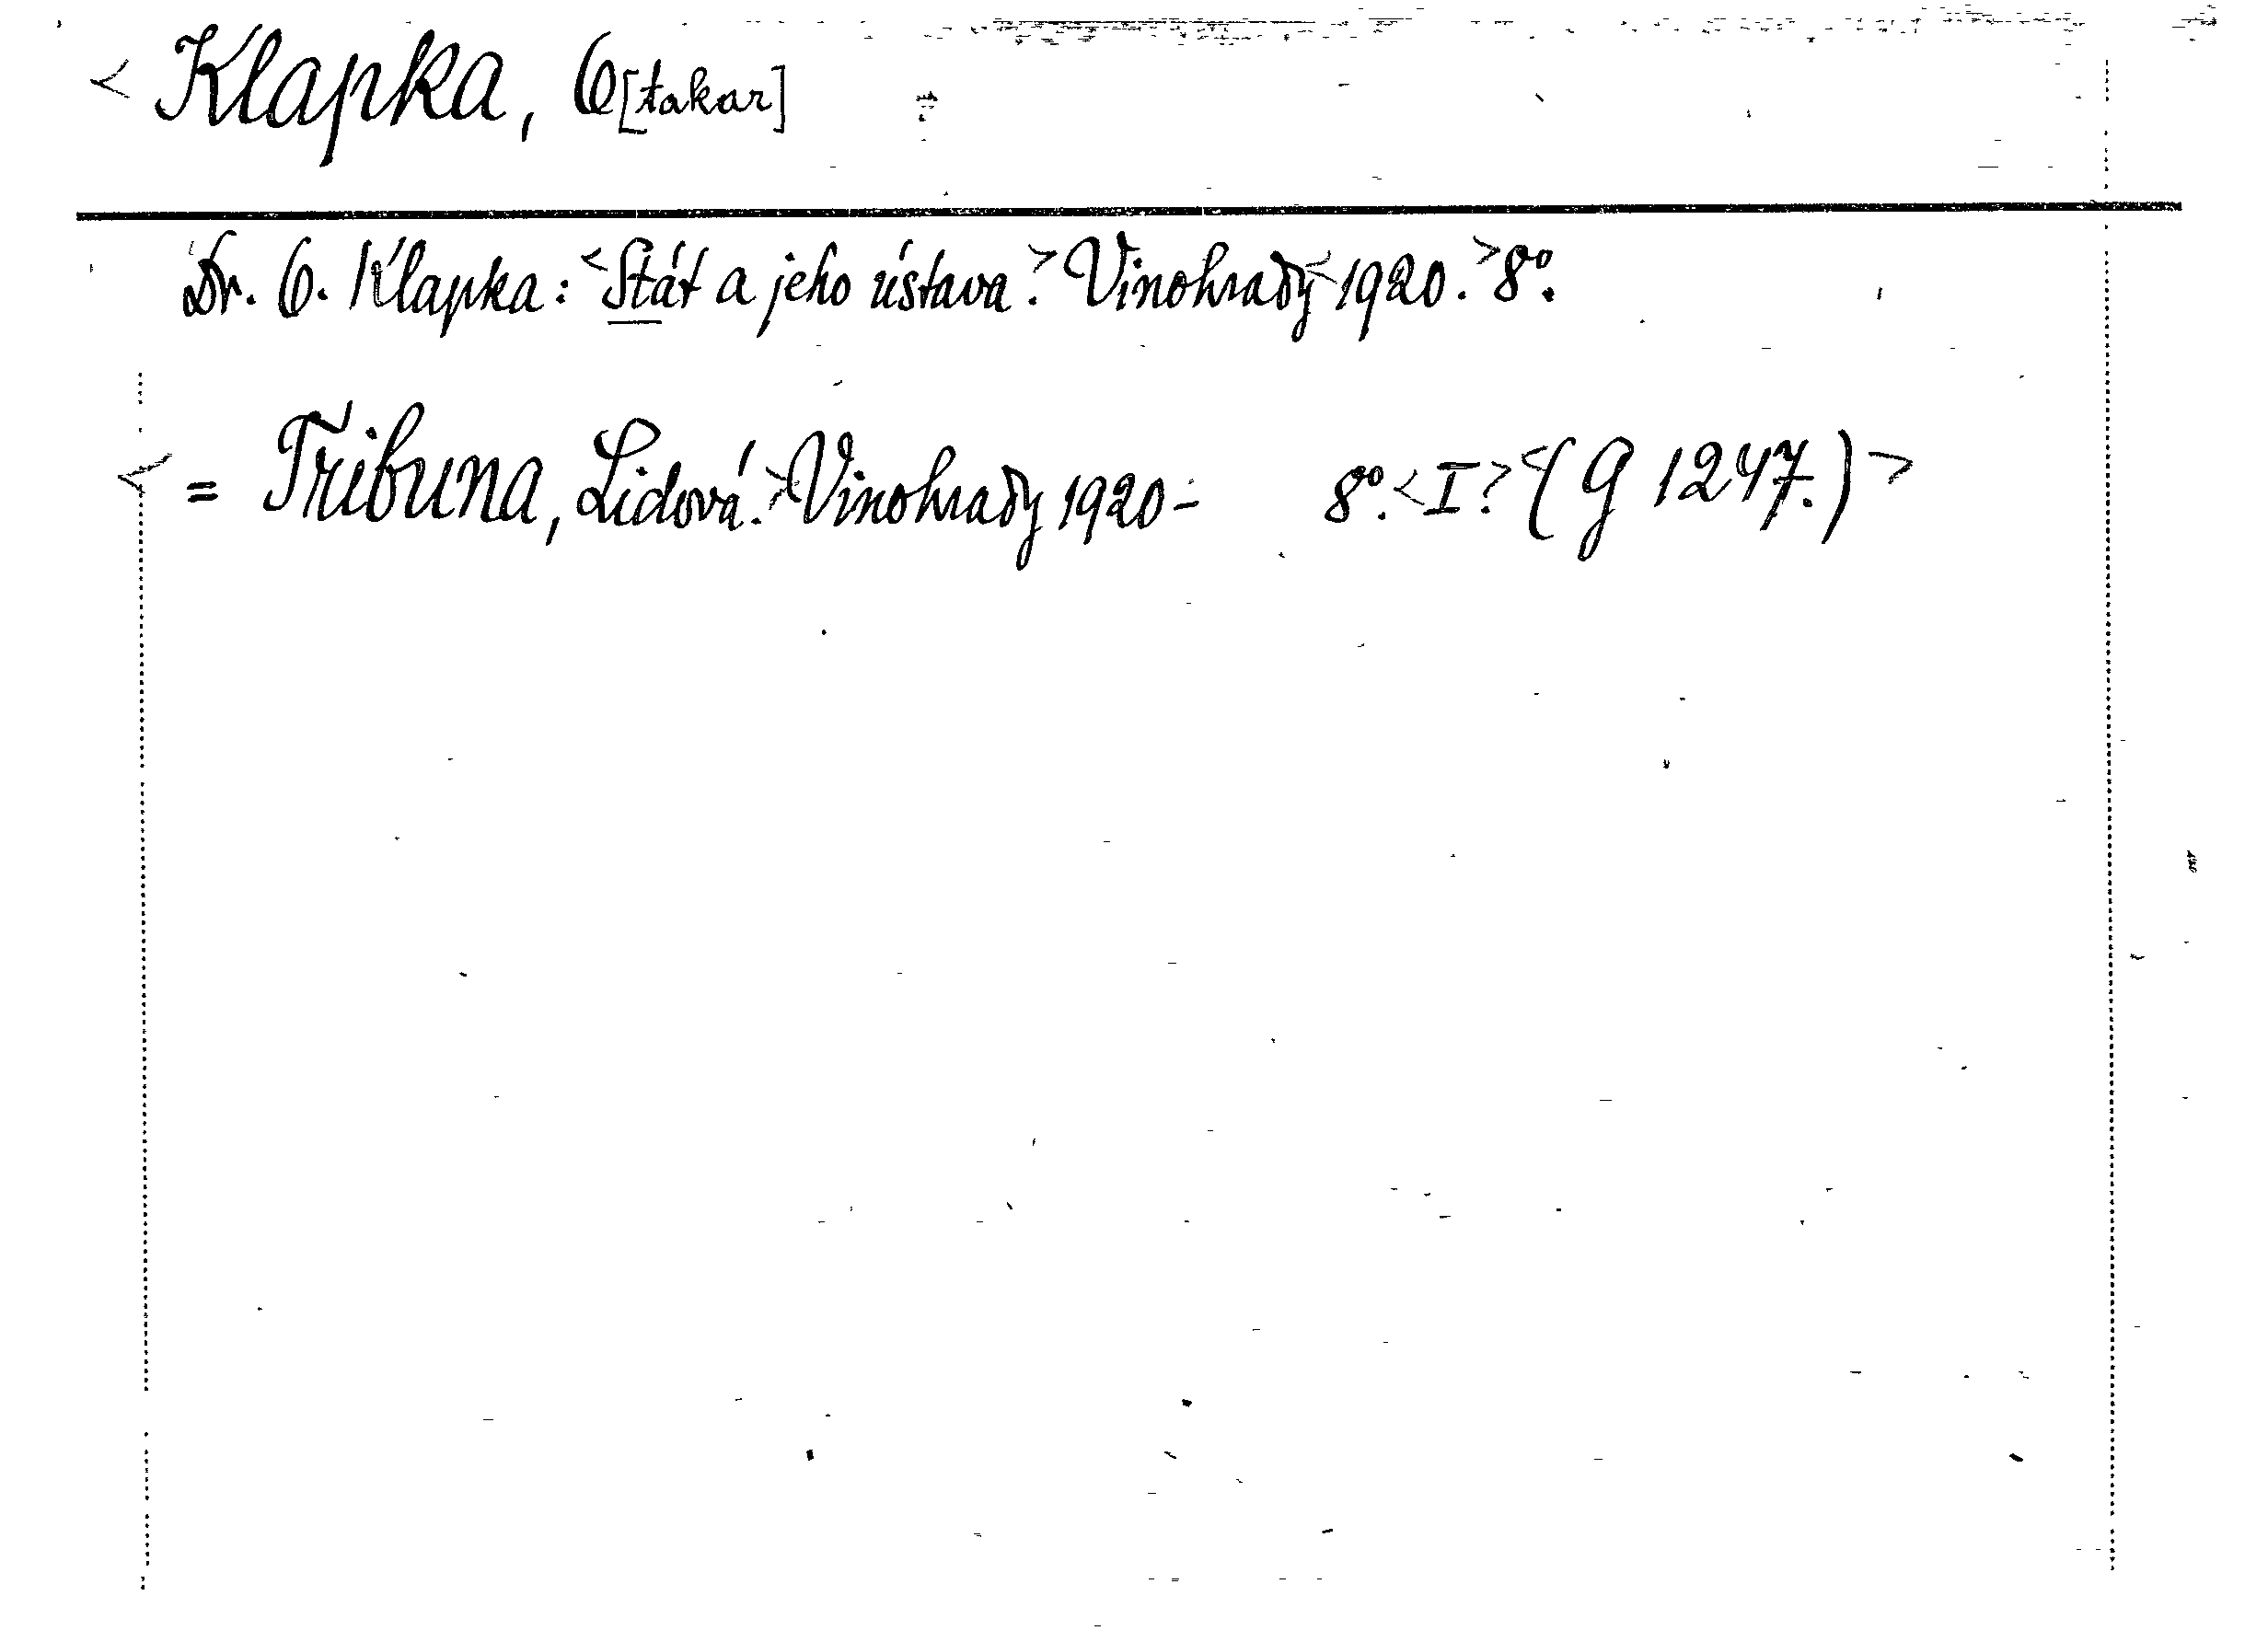 < Klapka, O[takar]
Dr. O. Klapka: <Stát a jeho ústava.> Vinohrady <1920.> 8º.
< = Tribuna, Lidová.> Vinohrady 1920- 8º. <I.> <(G 1247.)>